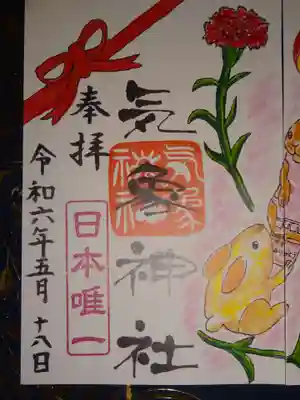 奉拝
気象神社
日本唯一
令和六年五月十八日